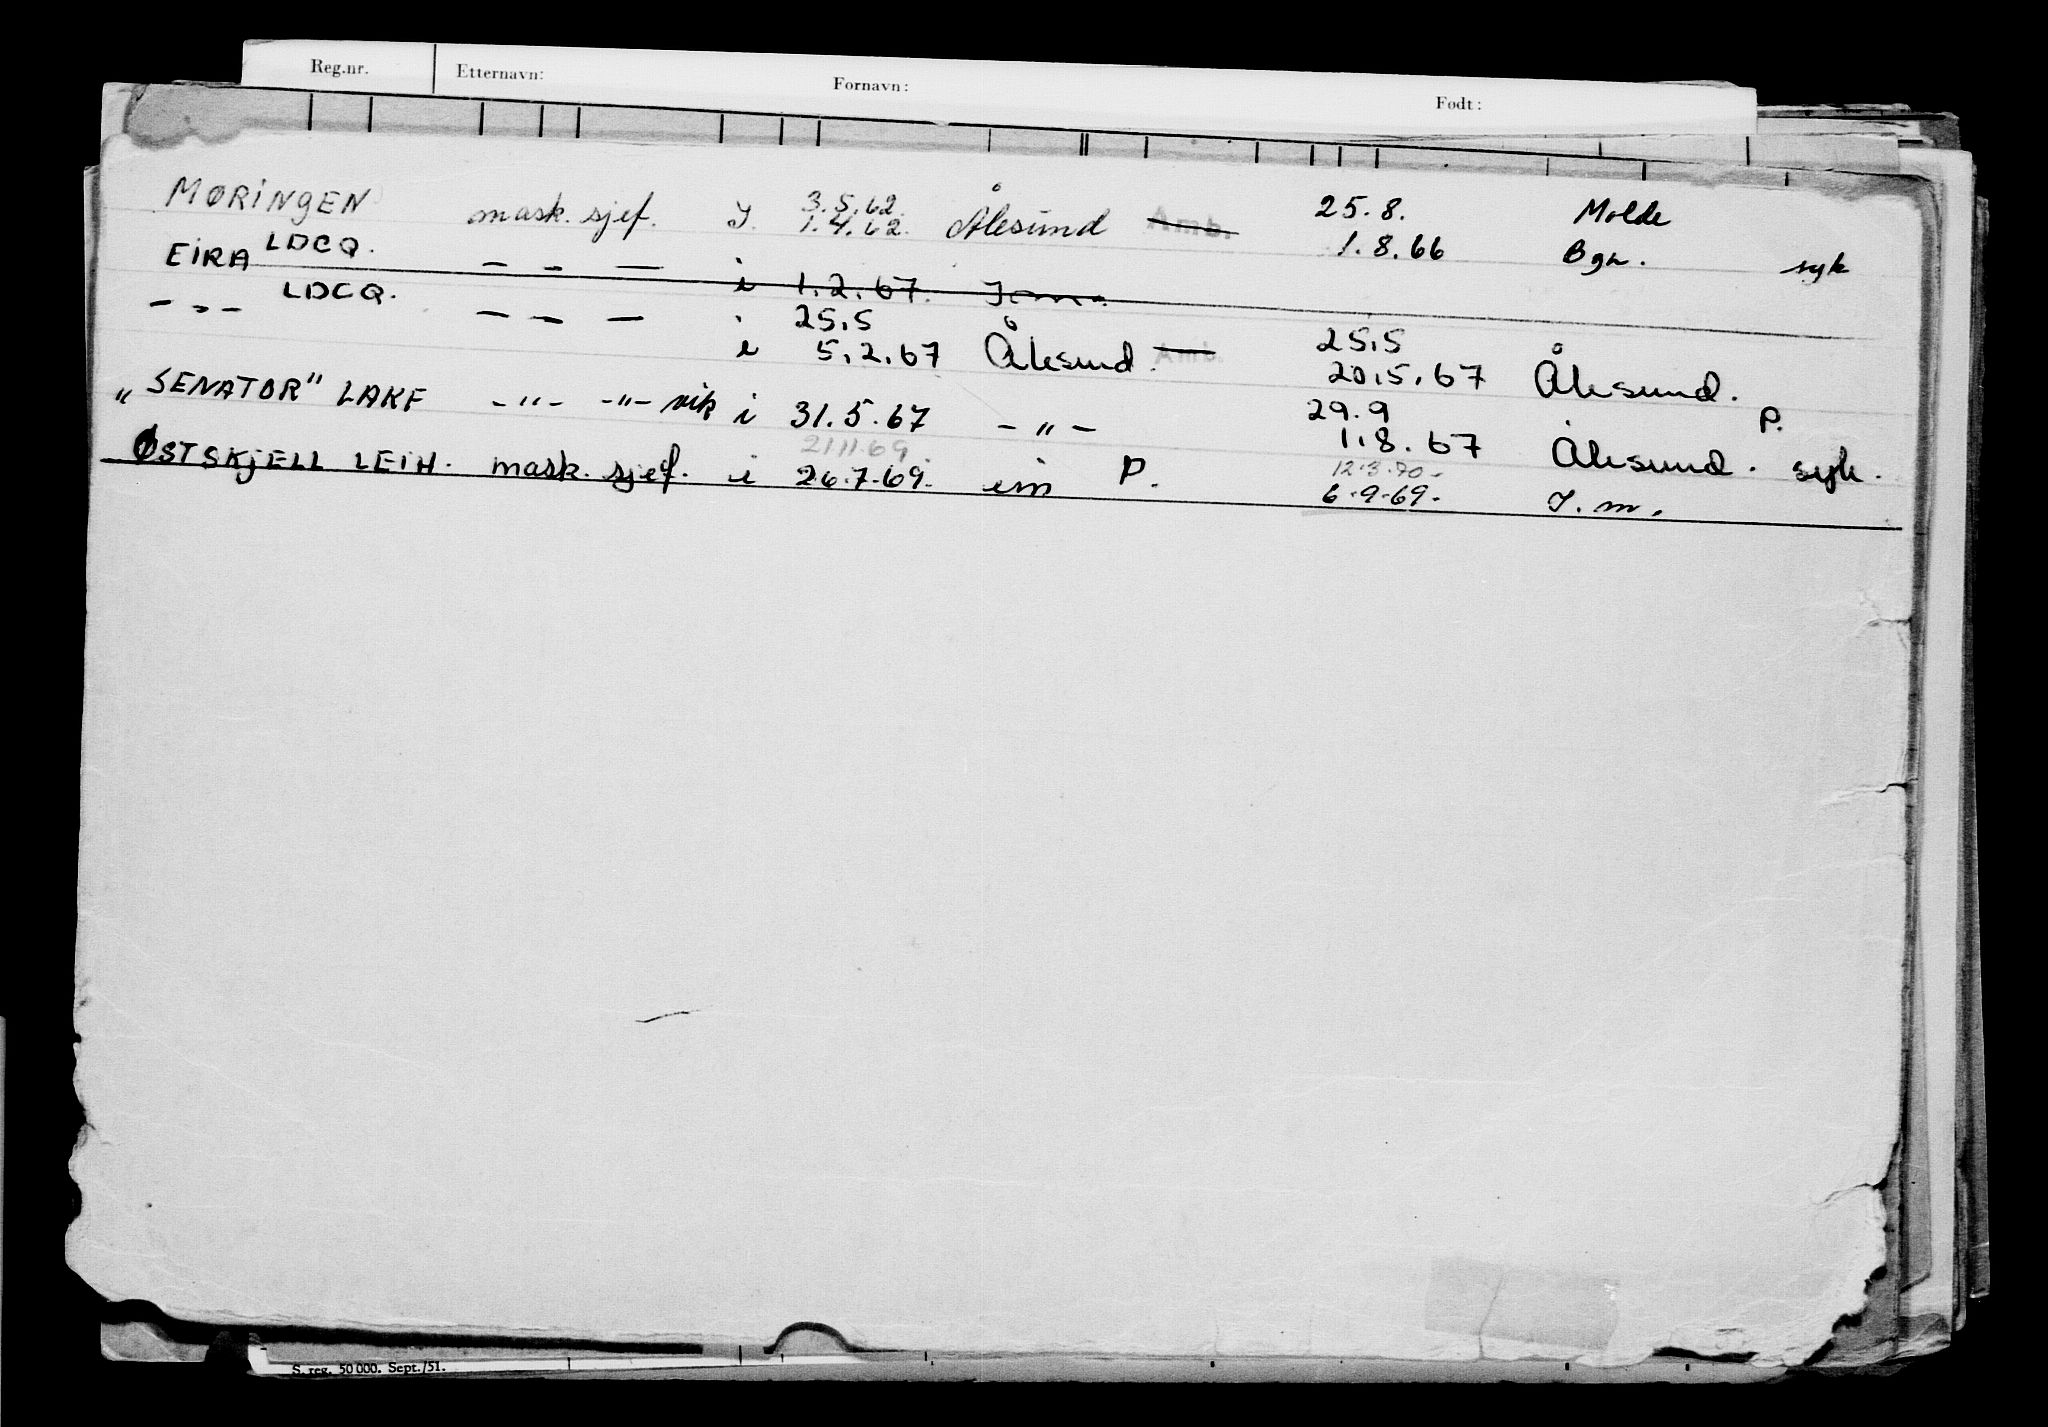 Reg.nr. Etternavn: Fornavn: Født:
3.5.62 25.8.
MØRINGEN mask. sjef. I. 1.4.62. Ålesund Amb. 1.8.66 Molde
EIRA LDCQ. — — — i 1.2.67. Bgn. syk
25.5 25.5
— " — LDCQ. — — — i 5.2.67 Ålesund. Amb. 20.5.67 Ålesund.
29.9 P.
„SENATOR" LAKF —"— —"— vik i 31.5.67 —"— 1.8.67 Ålesund. syk.
21.11.69. 12.3.70-
ØSTSKJELL LEIH. mask. sjef. i 26.7.69. P. 6.9.69. I.m.
S. reg. 50 000. Sept./51.